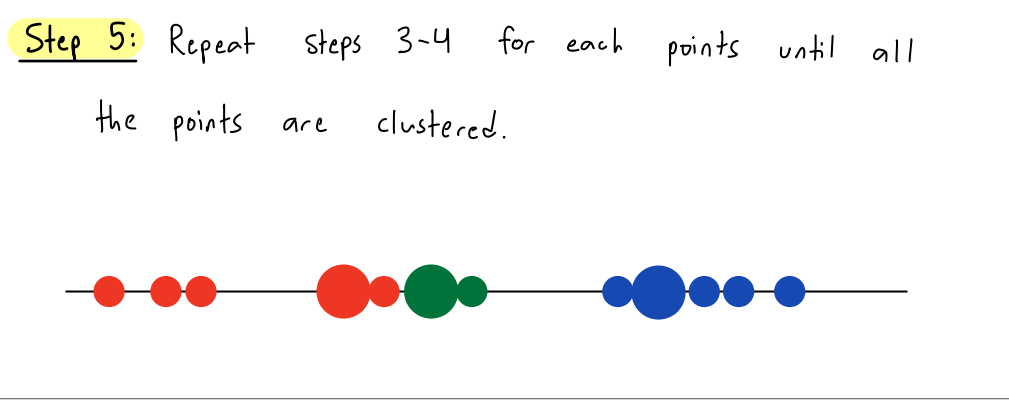 Step 5: Repeat steps 3-4 for each points until all
the points are clustered.